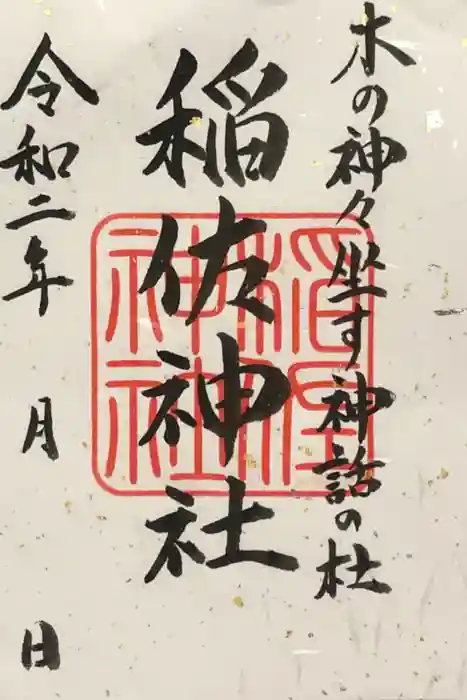 木の神々坐す神話の杜
稲佐神社
令和二年 月 日